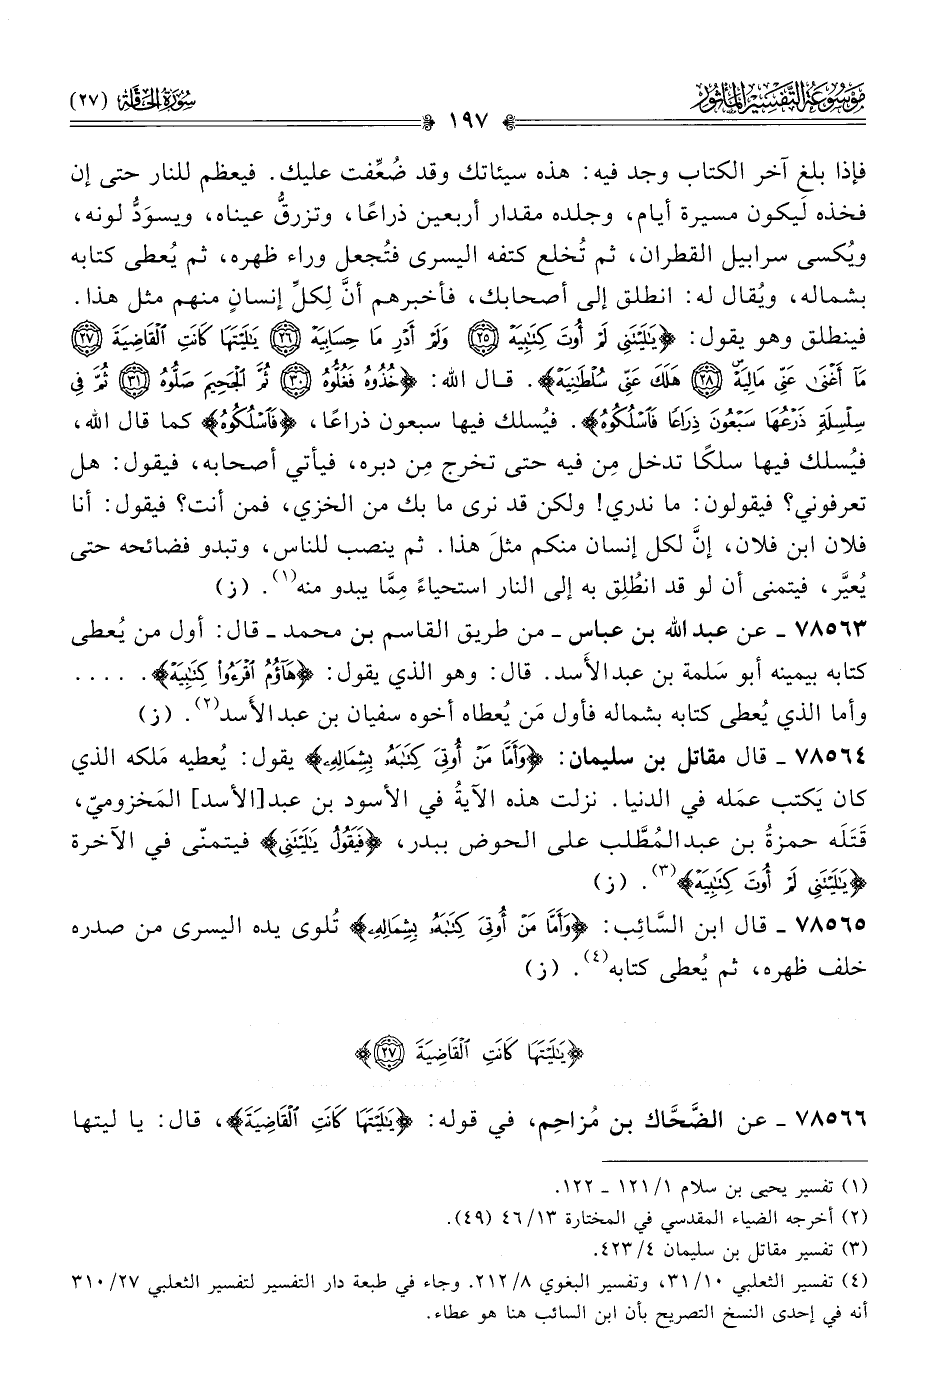 مَوْسُوعَة التَّفْسِير المَأْثُور
سُورَة الحَاقَّة (٢٧)
١٩٧
فإذا بلغ آخر الكتاب وجد فيه: هذه سيئاتك وقد ضُعِّفت عليك. فيعظم للنار حتى إن
فخذه لَيكون مسيرة أيام، وجلده مقدار أربعين ذراعًا، وتزرقُّ عيناه، ويسوَدُّ لونه،
ويُكسى سرابيل القطران، ثم تُخلع كتفه اليسرى فتُجعل وراء ظهره، ثم يُعطى كتابه
بشماله، ويُقال له: انطلق إلى أصحابك، فأخبرهم أنَّ لِكلِّ إنسانٍ منهم مثل هذا.
فينطلق وهو يقول: ﴿يَٰلَيْتَنِى لَمْ أُوتَ كِتَٰبِيَهْ ٢٥ وَلَمْ أَدْرِ مَا حِسَابِيَهْ ٢٦ يَٰلَيْتَهَا كَانَتِ ٱلْقَاضِيَةَ ٢٧
مَآ أَغْنَىٰ عَنِّى مَالِيَهْۜ ٢٨ هَلَكَ عَنِّى سُلْطَٰنِيَهْ﴾. قال الله: ﴿خُذُوهُ فَغُلُّوهُ ٣٠ ثُمَّ ٱلْجَحِيمَ صَلُّوهُ ٣١ ثُمَّ فِى
سِلْسِلَةٍ ذَرْعُهَا سَبْعُونَ ذِرَاعًا فَٱسْلُكُوهُ﴾. فيُسلك فيها سبعون ذراعًا، ﴿فَٱسْلُكُوهُ﴾ كما قال الله،
فيُسلك فيها سلكًا تدخل مِن فيه حتى تخرج مِن دبره، فيأتي أصحابه، فيقول: هل
تعرفوني؟ فيقولون: ما ندري! ولكن قد نرى ما بك من الخزي، فمن أنت؟ فيقول: أنا
فلان ابن فلان، إنَّ لكل إنسان منكم مثلَ هذا. ثم ينصب للناس، وتبدو فضائحه حتى
يُعيَّر، فيتمنى أن لو قد انطُلِق به إلى النار استحياءً مِمَّا يبدو منه(١). (ز)
٧٨٥٦٣ ـ عن عبد الله بن عباس ـ من طريق القاسم بن محمد ـ قال: أول من يُعطى
كتابه بيمينه أبو سَلمة بن عبدالأسد. قال: وهو الذي يقول: ﴿هَآؤُمُ ٱقْرَءُوا۟ كِتَٰبِيَهْ﴾. ....
وأما الذي يُعطى كتابه بشماله فأول مَن يُعطاه أخوه سفيان بن عبدالأسد(٢). (ز)
٧٨٥٦٤ ـ قال مقاتل بن سليمان: ﴿وَأَمَّا مَنْ أُوتِىَ كِتَٰبَهُۥ بِشِمَالِهِۦ﴾ يقول: يُعطيه مَلكه الذي
كان يَكتب عمَله في الدنيا. نزلت هذه الآيةُ في الأسود بن عبد[الأسد] المَخزوميّ،
قَتَلَه حمزةُ بن عبدالمُطَّلب على الحوض ببدر، ﴿فَيَقُولُ يَٰلَيْتَنِى﴾ فيتمنّى في الآخرة
﴿يَٰلَيْتَنِى لَمْ أُوتَ كِتَٰبِيَهْ﴾(٣). (ز)
٧٨٥٦٥ ـ قال ابن السَّائِب: ﴿وَأَمَّا مَنْ أُوتِىَ كِتَٰبَهُۥ بِشِمَالِهِۦ﴾ تُلوى يده اليسرى من صدره
خلف ظهره، ثم يُعطى كتابه(٤). (ز)
﴿يَٰلَيْتَهَا كَانَتِ ٱلْقَاضِيَةَ ٢٧﴾
٧٨٥٦٦ ـ عن الضَّحَّاك بن مُزاحِم، في قوله: ﴿يَٰلَيْتَهَا كَانَتِ ٱلْقَاضِيَةَ﴾، قال: يا ليتها
(١) تفسير يحيى بن سلام ١/ ١٢١ ـ ١٢٢.
(٢) أخرجه الضياء المقدسي في المختارة ١٣/ ٤٦ (٤٩).
(٣) تفسير مقاتل بن سليمان ٤/ ٤٢٣.
(٤) تفسير الثعلبي ١٠/ ٣١، وتفسير البغوي ٨/ ٢١٢. وجاء في طبعة دار التفسير لتفسير الثعلبي ٢٧/ ٣١٠
أنه في إحدى النسخ التصريح بأن ابن السائب هنا هو عطاء.